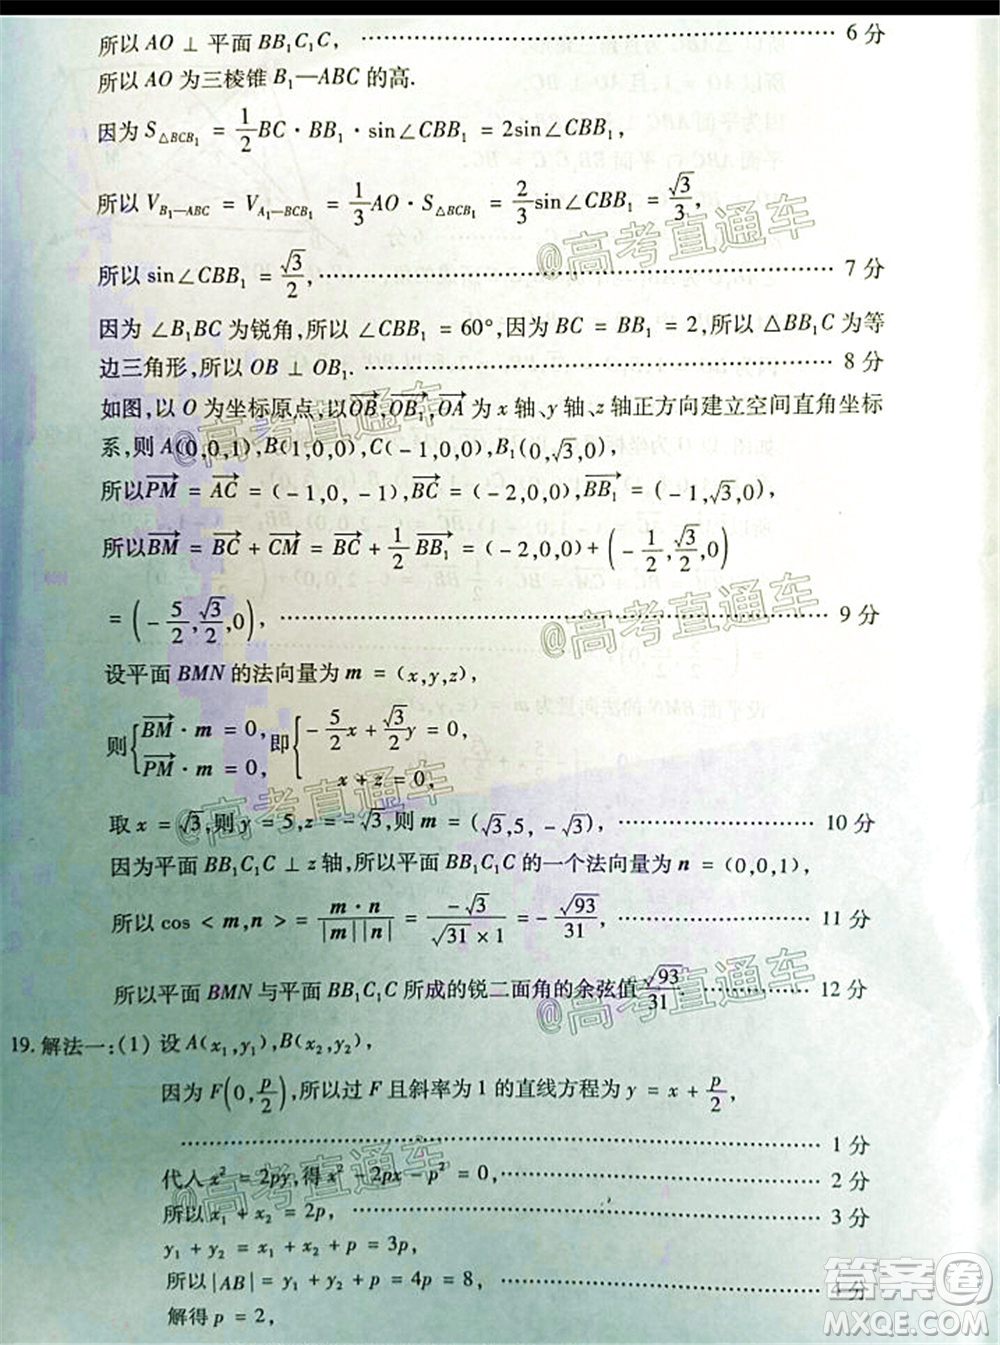 所以 AO ⊥ 平面 BB₁C₁C, ………… 6 分
所以 AO 为三棱锥 B₁—ABC 的高.
因为 S△BCB₁ = 1/2 BC · BB₁ · sin∠CBB₁ = 2sin∠CBB₁,
所以 V_{B₁—ABC} = V_{A₁—BCB₁} = 1/3 AO · S△BCB₁ = 2/3 sin∠CBB₁ = √3/3,
@高考直通车
所以 sin∠CBB₁ = √3/2, ………… 7 分
因为 ∠B₁BC 为锐角,所以 ∠CBB₁ = 60°,因为 BC = BB₁ = 2,所以 △BB₁C 为等
边三角形,所以 OB ⊥ OB₁. ………… 8 分
如图,以 O 为坐标原点,以 →OB, →OB₁, →OA 为 x 轴、y 轴、z 轴正方向建立空间直角坐标
@高考直通车
系,则 A(0,0,1),B(1,0,0),C(-1,0,0),B₁(0,√3,0),
所以 →PM = →AC = (-1,0,-1), →BC = (-2,0,0), →BB₁ = (-1,√3,0),
所以 →BM = →BC + →CM = →BC + 1/2 →BB₁ = (-2,0,0) + (-1/2, √3/2, 0)
= (-5/2, √3/2, 0), ………… 9 分
@高考直通车
设平面 BMN 的法向量为 m = (x,y,z),
则 { →BM · m = 0, →PM · m = 0, 即 { -5/2 x + √3/2 y = 0, x + z = 0,
@高考直通车
取 x = √3,则 y = 5,z = -√3,则 m = (√3,5,-√3), ………… 10 分
因为平面 BB₁C₁C ⊥ z 轴,所以平面 BB₁C₁C 的一个法向量为 n = (0,0,1),
所以 cos < m,n > = m · n / |m||n| = -√3 / (√31 × 1) = -√93/31, ………… 11 分
所以平面 BMN 与平面 BB₁C₁C 所成的锐二面角的余弦值 √93/31. ………… 12 分
@高考直通车
19. 解法一:(1) 设 A(x₁,y₁),B(x₂,y₂),
因为 F(0, p/2),所以过 F 且斜率为 1 的直线方程为 y = x + p/2,
………… 1 分
代人 x² = 2py,得 x² - 2px - p² = 0, ………… 2 分
@高考直通车
所以 x₁ + x₂ = 2p, ………… 3 分
y₁ + y₂ = x₁ + x₂ + p = 3p,
所以 |AB| = y₁ + y₂ + p = 4p = 8, ………… 4 分
解得 p = 2,
答案圈
MXQE.COM